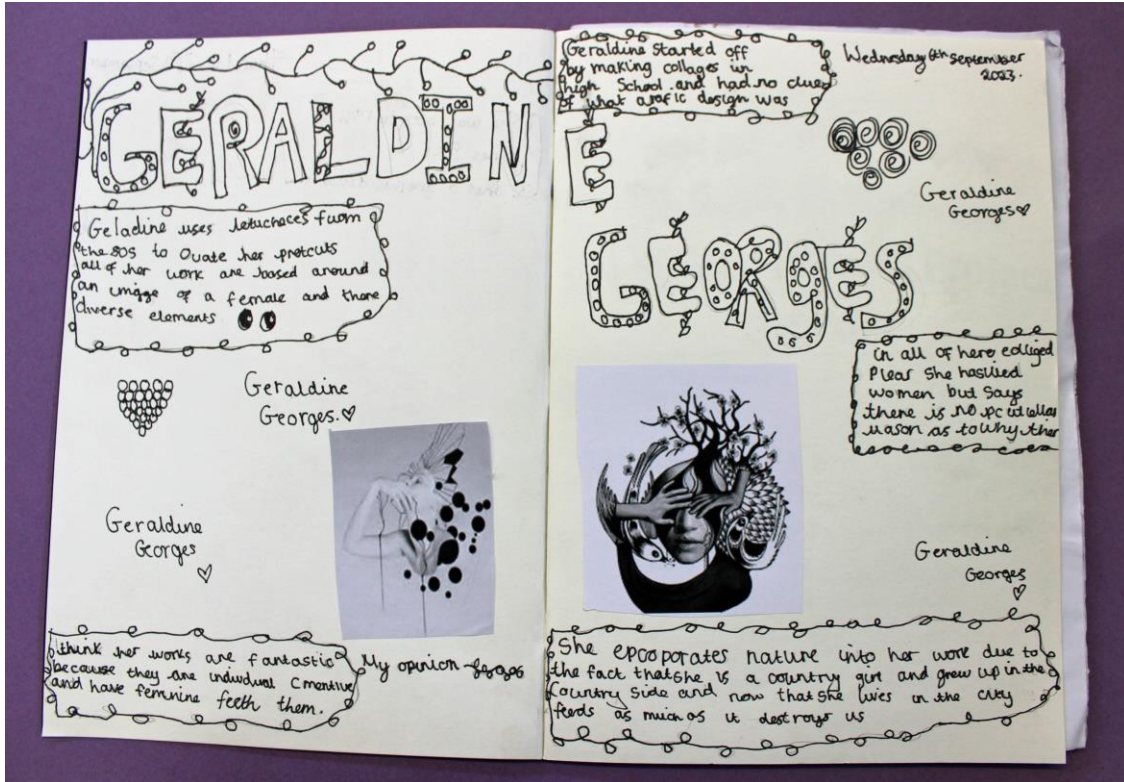 GERALDIN
Geladine uses letuchaces fuom
the 80s to Ovate her protcuts
all of her work are based around
an umage of a female and there
diverse elements
Geraldine
Georges.
Geraldine
Georges
I think her works are fantastic
because they are induvidual Cmentive
and have feminine feeth them.
My opinion
Geraldine Started off
by making collages in
high School and had no clue
of what arafic design was
Wednesday 6th september
2023.
E
Geraldine
Georges
GEORGES
in all of here edliged
Plear She hasUsed
women but Says
there is no
uason as to why ther
Geraldine
Georges
She epcoporates nature into her work due to
the fact that she is a country girl and grew up in the
Country side and now that she lives in the city
feeds as much as it destroys us